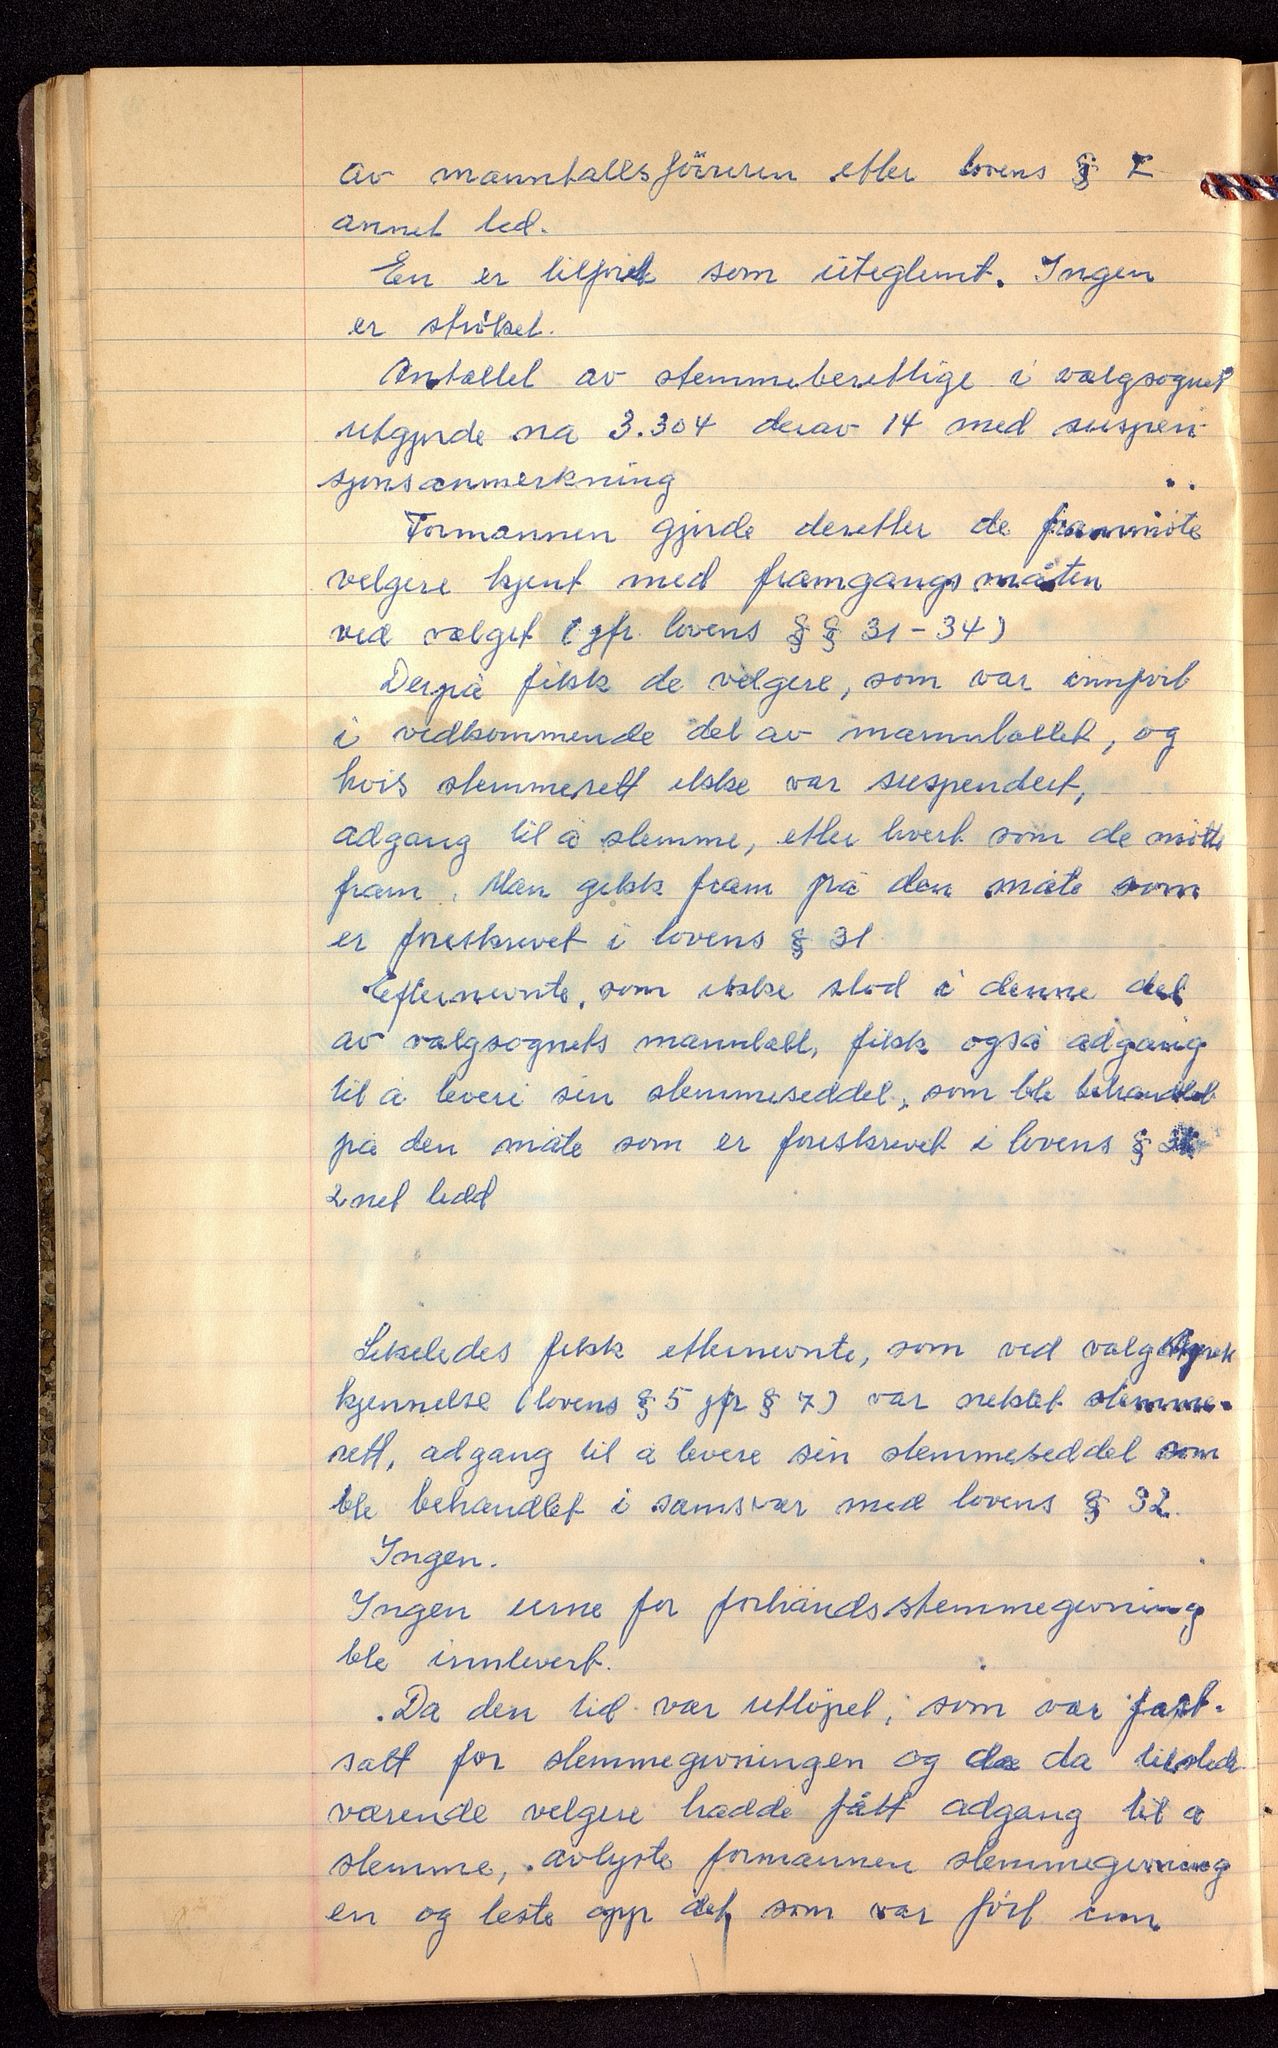 av manntallsföreren etter lovens § 7
annet led.
En er tilført som uteglemt. Ingen
er strøket.
Antallet av stemmeberettige i valgsognet
utgjorde na 3.304 derav 14 med suspen-
sjonsanmerkning
Formannen gjorde deretter de frammøte
velgere kjent med framgangsmåten
ved valget (jfr. lovens § § 31-34)
Derpå fikk de velgere, som var innført
i vedkommende del av manntallet, og
hvis stemmerett ikke var suspendert,
adgang til å stemme, etter hvert som de møtte
fram. Man gikk fram på den måte som
er foreskrevet i lovens § 31
Efternevnte, som ikke stod i denne del
av valgsognets manntall, fikk også adgang
til å levere sin stemmeseddel, som ble behandlet
på den måte som er foreskrevet i lovens §
2net ledd
Likeledes fikk etternevnte, som ved valgstyrets
kjennelse (lovens § 5 jfr § 7) var nektet stemme-
rett, adgang til å levere sin stemmeseddel som
ble behandlet i samsvar med lovens § 32.
Ingen.
Ingen urne for forhåndsstemmegivning
ble innlevert.
Da den tid var utløpet, som var fast-
satt for stemmegivningen og de da tilstede
værende velgere hadde fått adgang til a
stemme, avlyste formannen stemmegivning
en og leste opp det som var ført inn